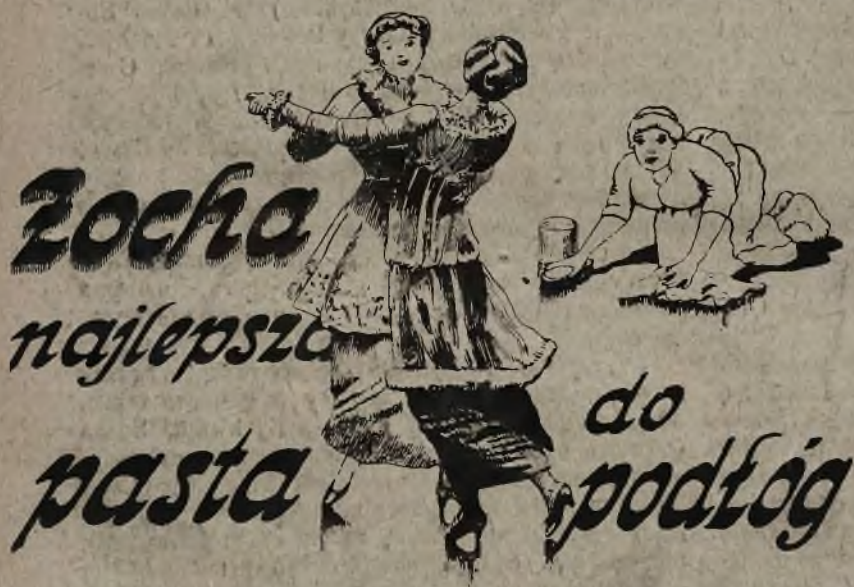 Zocha
najlepsza
pasta do
podłóg